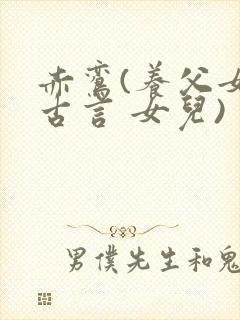 赤鸞(養父女
古言 女兒)
男僕先生和鬼